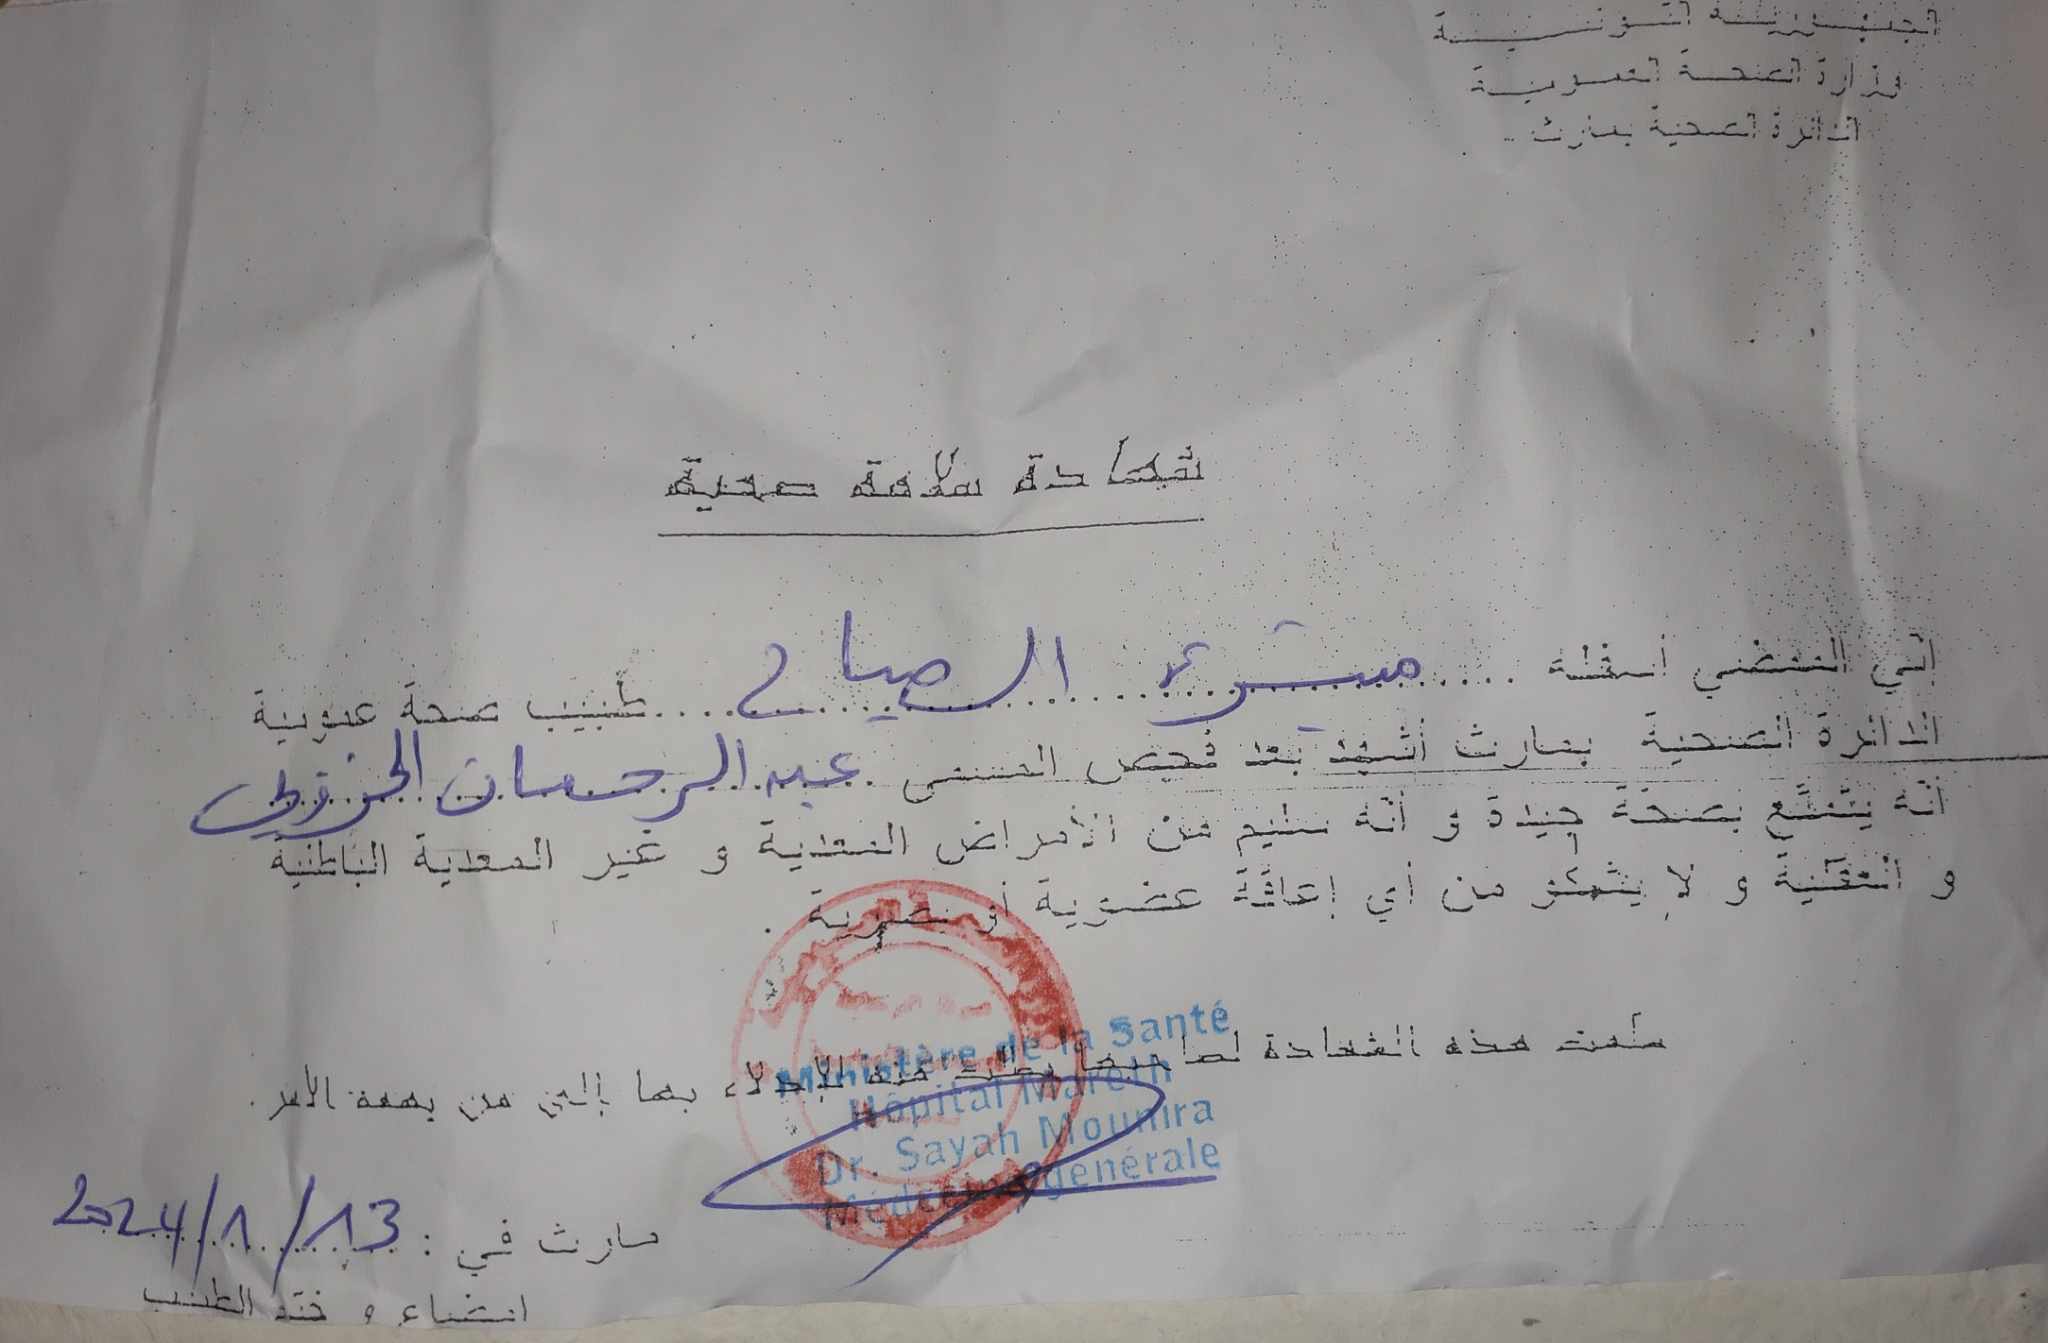 الجمهورية التونسية
وزارة الصحة العمومية
الدائرة الصحية بمارث
شهادة سلامة صحية
إني الممضي أسفله ............ الصياح ........ طبيب صحة عمومية
الدائرة الصحية بمارث أشهد بعد فحص المسمى . عبد الرحمان
أنه يتمتع بصحة جيدة و أنه سليم من الأمراض المعدية و غير المعدية الباطنية
و العقلية و لا يشكو من أي إعاقة عضوية أو بصرية .
سلمت هذه الشهادة لصاحبها بطلب منه للإدلاء بها إلى من يهمه الأمر .
Ministère de la Santé
Hôpital Mareth
Dr. Sayah Mounira
Médecine générale
مارث في : 13/1/2024
امضاء و ختم الطبيب